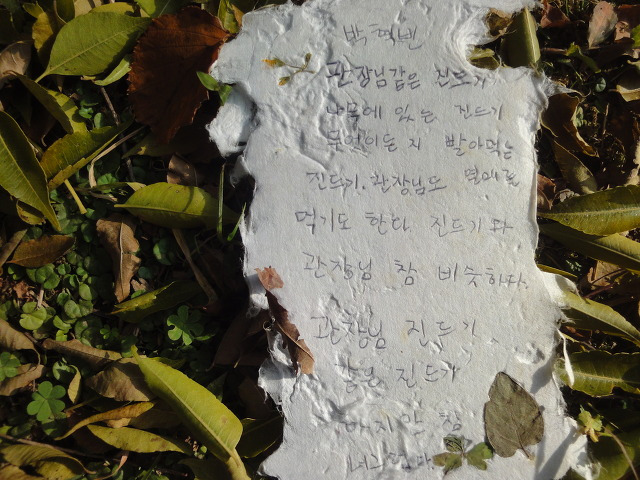 박혁빈
관장님같은 진드기
나무에 있는 진드기
무엇이든지 빨아먹는
진드기. 관장님도 열매를
먹기도 한다 진드기다
관장님 참 비슷하다.
관장님 진드기
같은 진드기
하지만 참